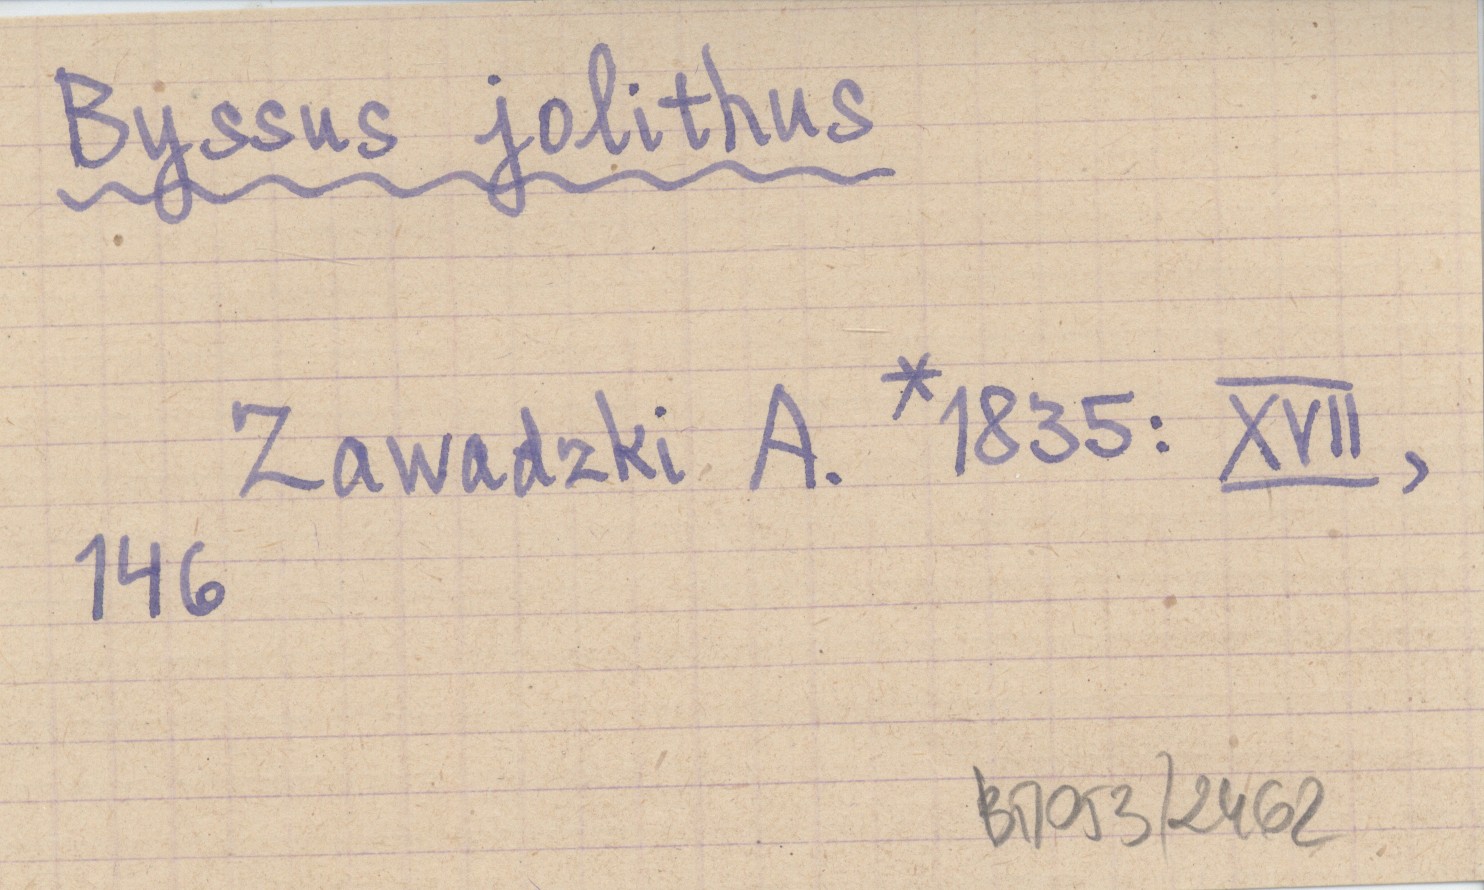 Byssus jolithus
Zawadzki A. *1835: XVII,
146
ВП053/2462